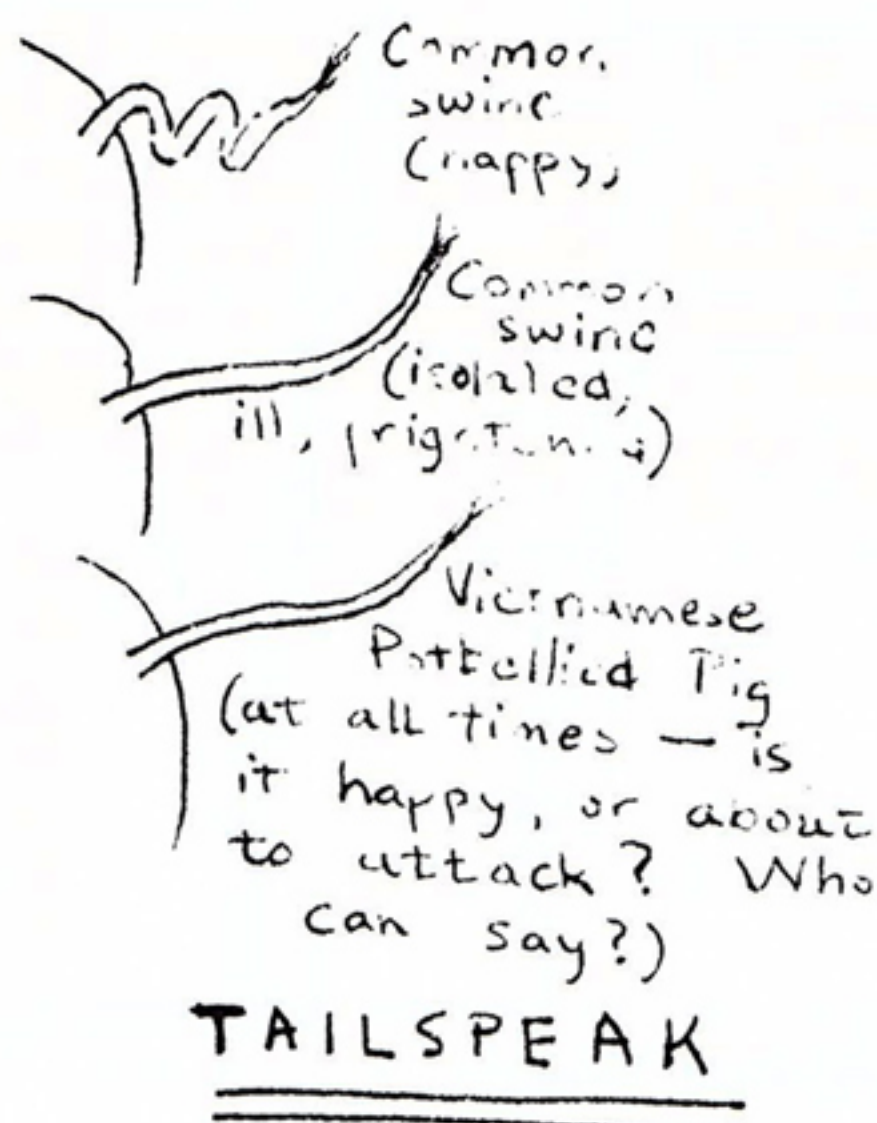 Common
swine
(happy)
Common
swine
(isolated,
ill, frightened)
Vietnamese
Potbellied Pig
(at all times — is
it happy, or about
to attack? Who
can say?)
TAILSPEAK